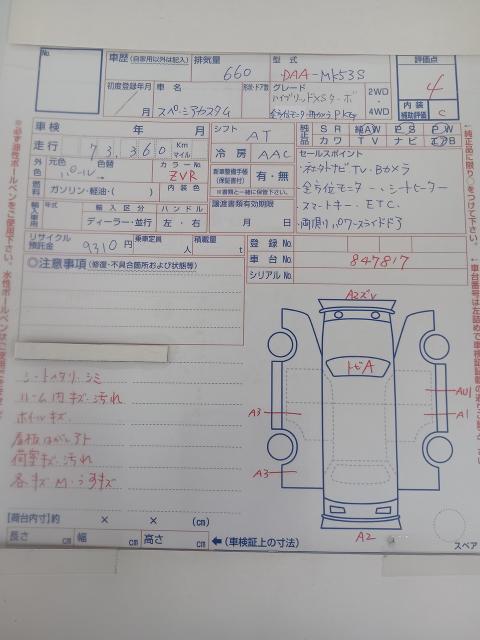 No.
車歴 (自家用以外は記入)
排気量 660
型式 DAA-MK53S
評価点 4
初度登録年月 / 月
車名 スペーシアカスタム
グレード ハイブリッドXSターボ
全方位モニターカメラPkg
2WD・4WD
内装補助評価 C
車検 年 月
シフト AT
純正品 SR 純AW PS PW
カワ TV ナビ エアB
走行 73,360 Km マイル
冷房 AAC
セールスポイント
外色 元色 パール→ 色替
カラーNo. ZVR
新車整備手帳(保証書付) 有・無
※書類と一緒に保管下さい。
・全方位モニター、シートヒーター
・スマートキー、ETC、
・両側パワースライドドア
燃料 ガソリン・軽油・( )
内装色
輸入車用 年式 輸入区分 ハンドル
ディーラー・並行 左・右
譲渡書類有効期限
月 日
リサイクル預託金 9310 円
乗車定員 人
積載量 t
登録No.
車台No. 847817
シリアルNo.
◎注意事項 (修復・不具合箇所および状態等)
シートヘタリ・シミ
ルーム内キズ・汚れ
ホイルキズ
荷室キズ・汚れ
各キズM・うすキズ
A2ズV
トビA
A3
A3
AU1
A1
A2
[荷台内寸] 約 × × (cm)
長さ cm 幅 cm 高さ cm ←(車検証上の寸法)
スペア
※必ず油性ボールペンをご使用下さい。水性ボールペンはご使用
←純正品に限り○をつけて下さい。